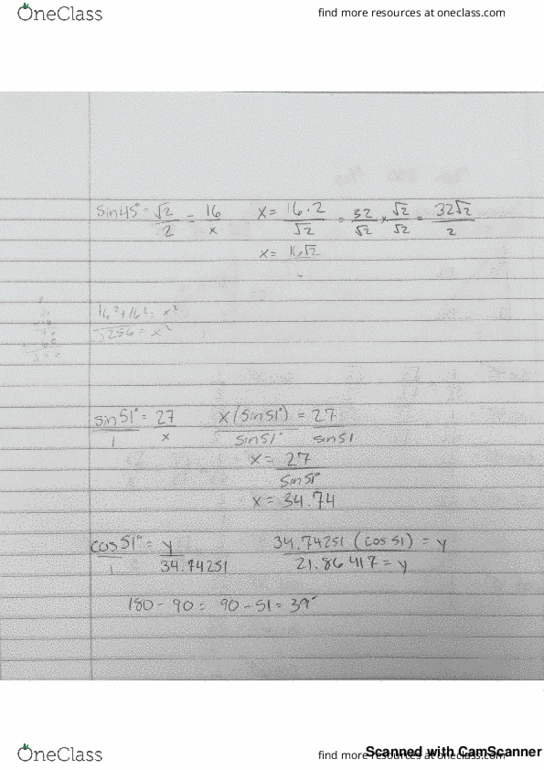 OneClass
find more resources at oneclass.com
sin45° = √2/2 = 16/x   x = 16·2/√2 = 32/√2 × √2/√2 = 32√2/2
x = 16√2
16² + 16² = x²
√256 = x²
sin51°/1 = 27/x   x(sin51°)/sin51° = 27/sin51
x = 27/sin51°
x = 34.74
cos51°/1 = y/34.74251   34.74251 (cos 51) = y
21.86417 = y
180 - 90 = 90 - 51 = 39°
OneClass
find more resources at oneclass.com
Scanned with CamScanner